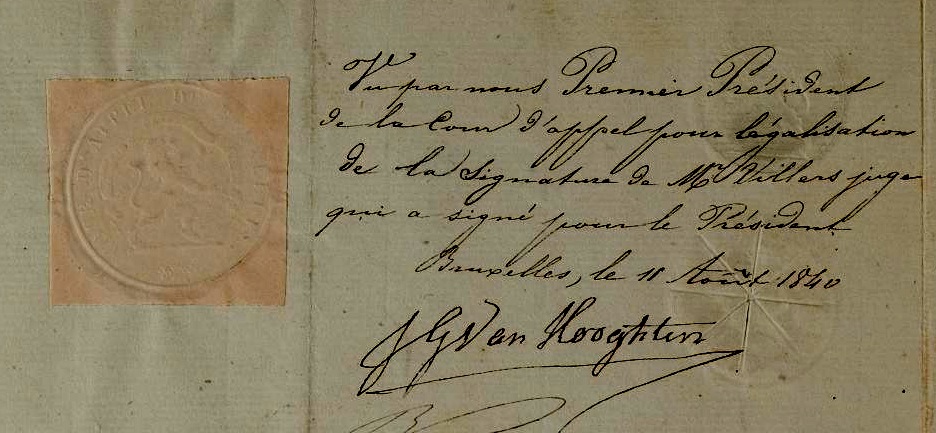 Vu par nous Premier Président
de la Cour d'appel pour légalisation
de la signature de Mr Villers juge
qui a signé pour le Président
Bruxelles, le 11 Août 1840
J G Van Hooghten
D'APPEL DE